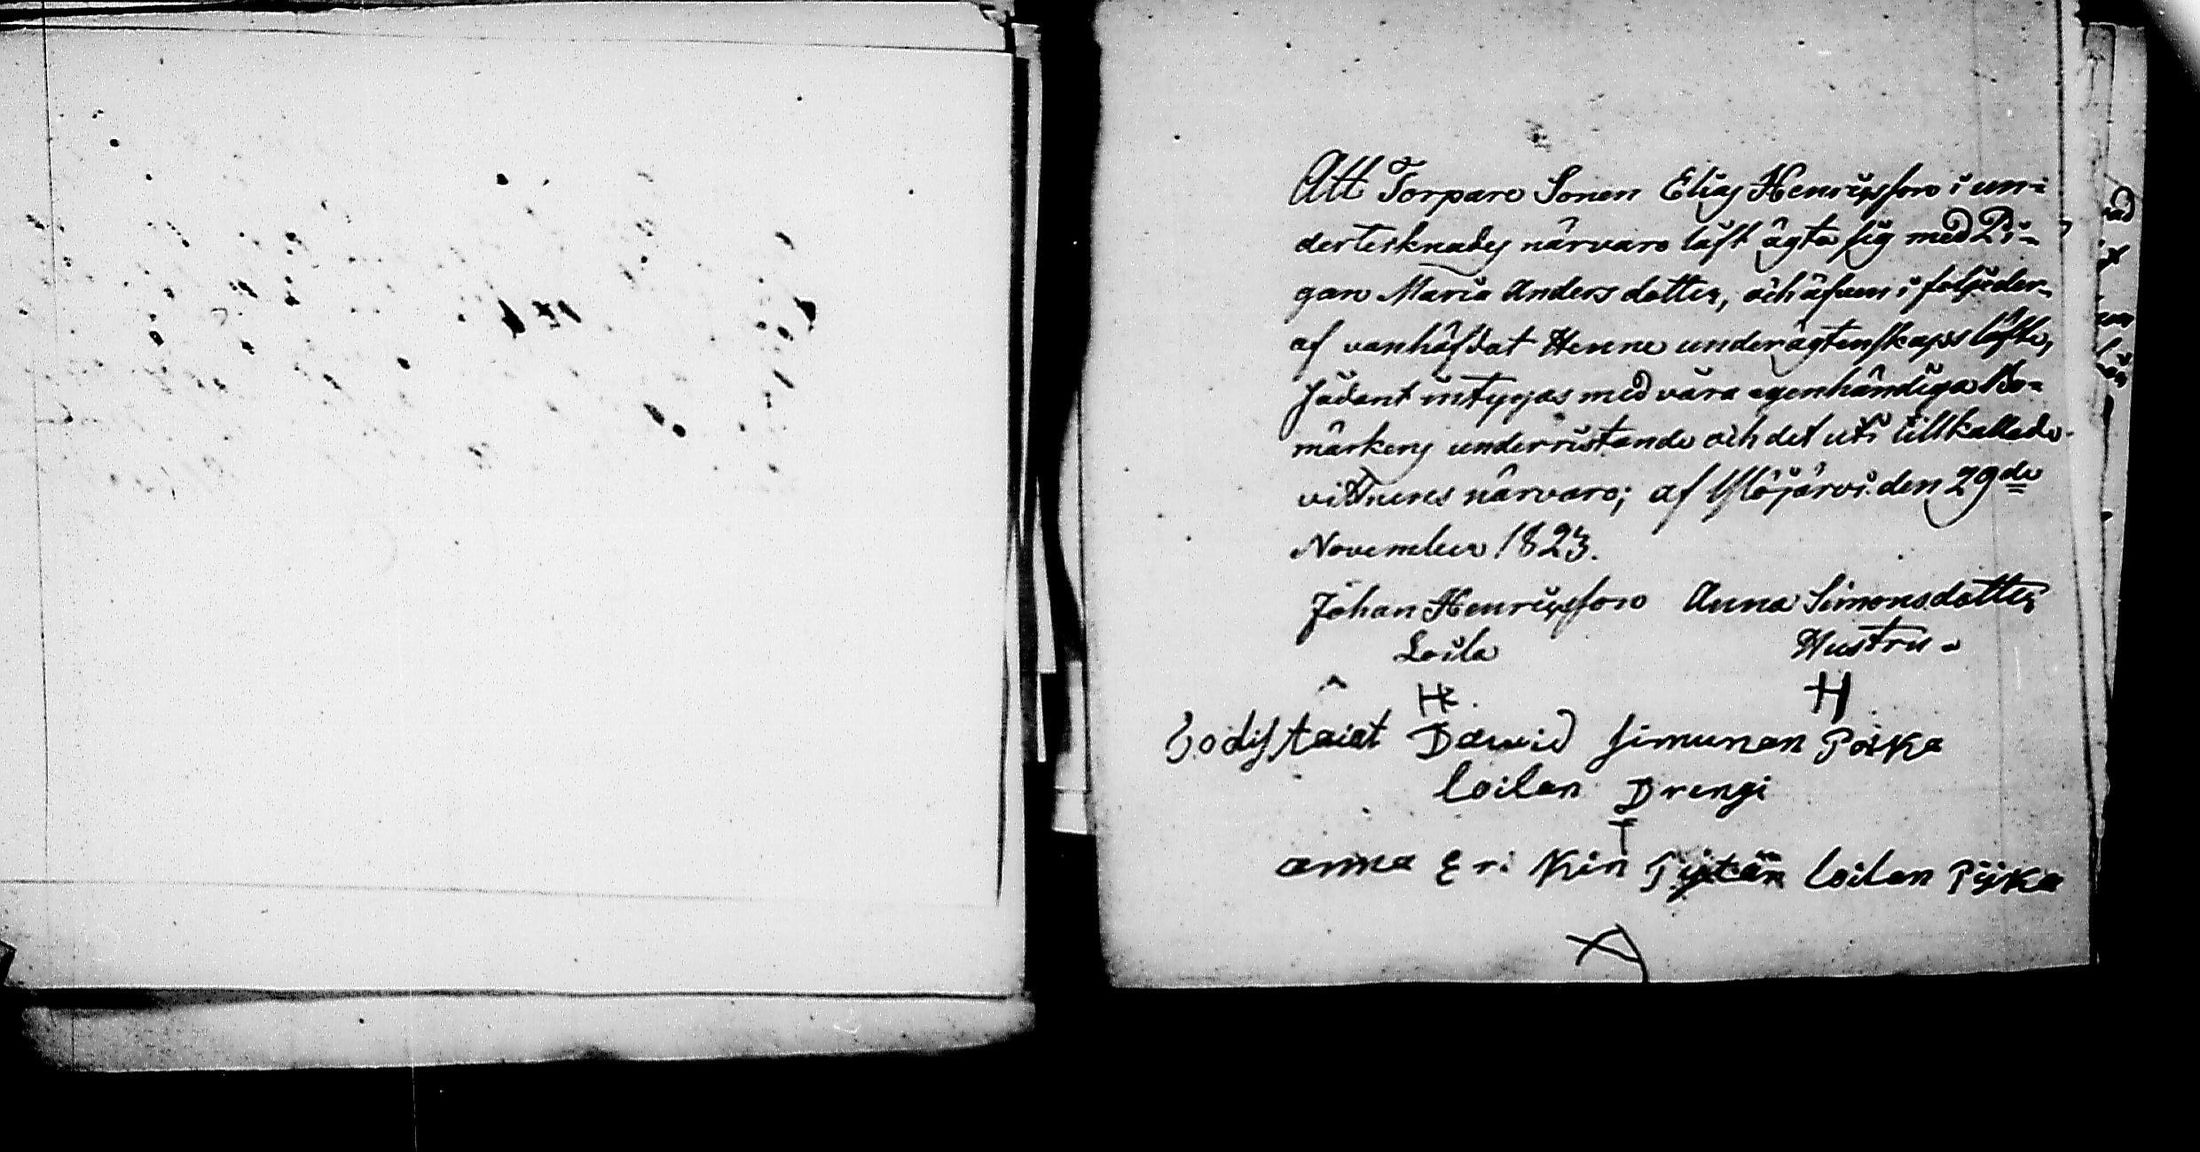 Att Torpare Sonen Elias Henricsson i un-
dertecknades närvaro låft ägta sig med Pi-
gan Maria Anders dotter, och äfven i följd der-
af vanhäfdat Henne under ägtenskaps löfte,
sådant intygas med våra egenhändiga Bo-
märkens underristande och det uti tillkallade
vittnens närvaro; af Ylöjärvi den 29de
November 1823.
Johan Henricsson Anna Simonsdotter
Loila Hustru
H H
Todistaiat Dawid Simunan Poika
loilan Drengi
T
anna Eri Kin Tytär loilan Piika